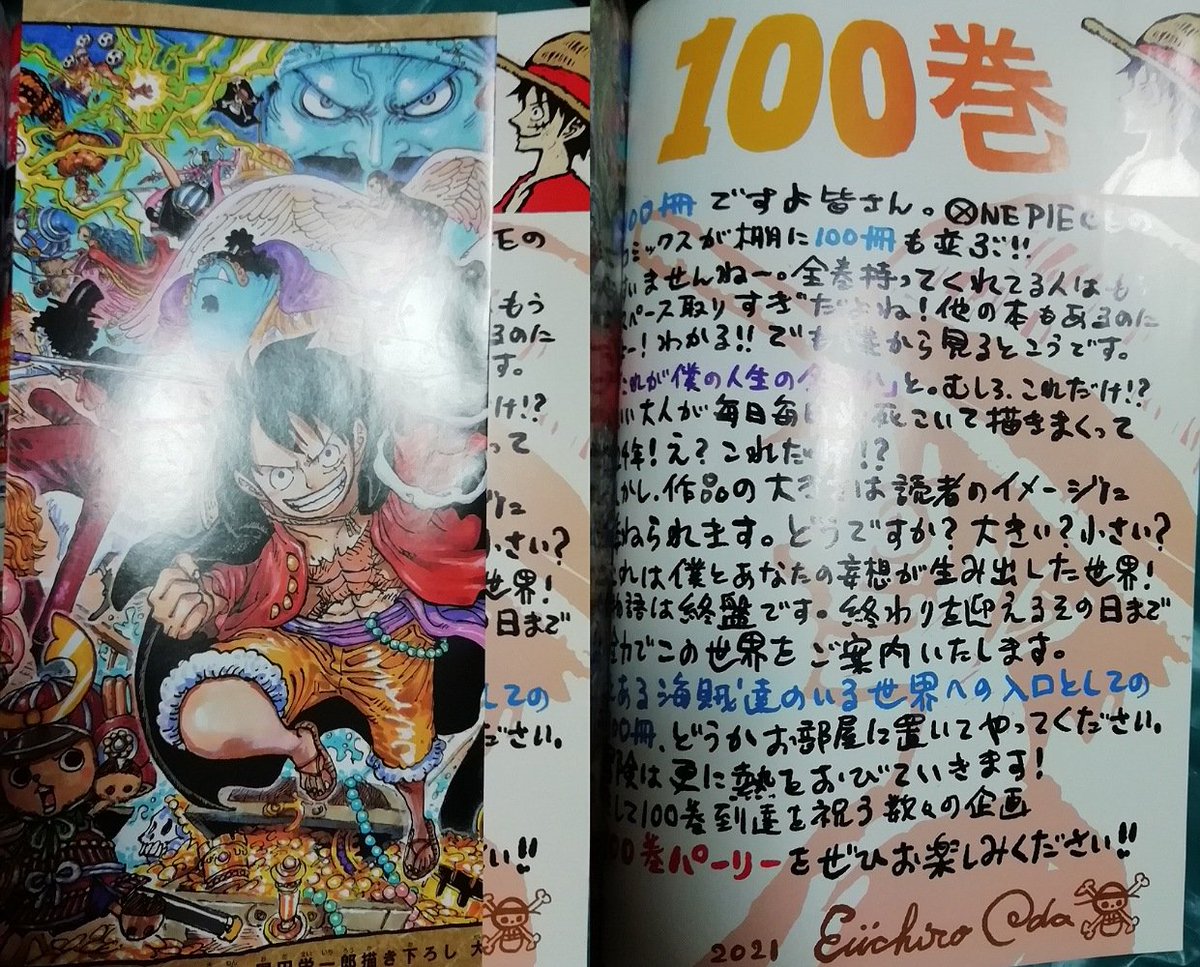 Eの
もう
るのに
す。
け!?
って
に
小さい?
世界!
の日まで
しての
ださい。
い!!
田栄一郎描き下ろし 大
100巻
00冊ですよ皆さん。ONE PIECEの
ミックスが棚に100冊も並ぶ!!
いませんねー。全巻持ってくれてる人はも
ペース取りすぎだよね!他の本もあるのに
ー!わかる!!でも僕から見るとこうです。
これが僕の人生の と。むしろ、これだけ!?
い大人が毎日毎日 こいて描きまくって
年!え?これだけ!?
かし、作品の大きさは読者のイメージに
ねられます。どうですか?大きい?小さい?
これは僕とあなたの妄想が生み出した世界!
物語は終盤です。終わりを迎えるその日まで
力でこの世界をご案内いたします。
ある海賊達のいる世界への入口としての
00冊、どうかお部屋に置いてやってください。
険は更に熱をおびていきます!
して100巻到達を祝う数々の企画
00巻パーリーをぜひお楽しみください!!
2021 Eiichiro Oda